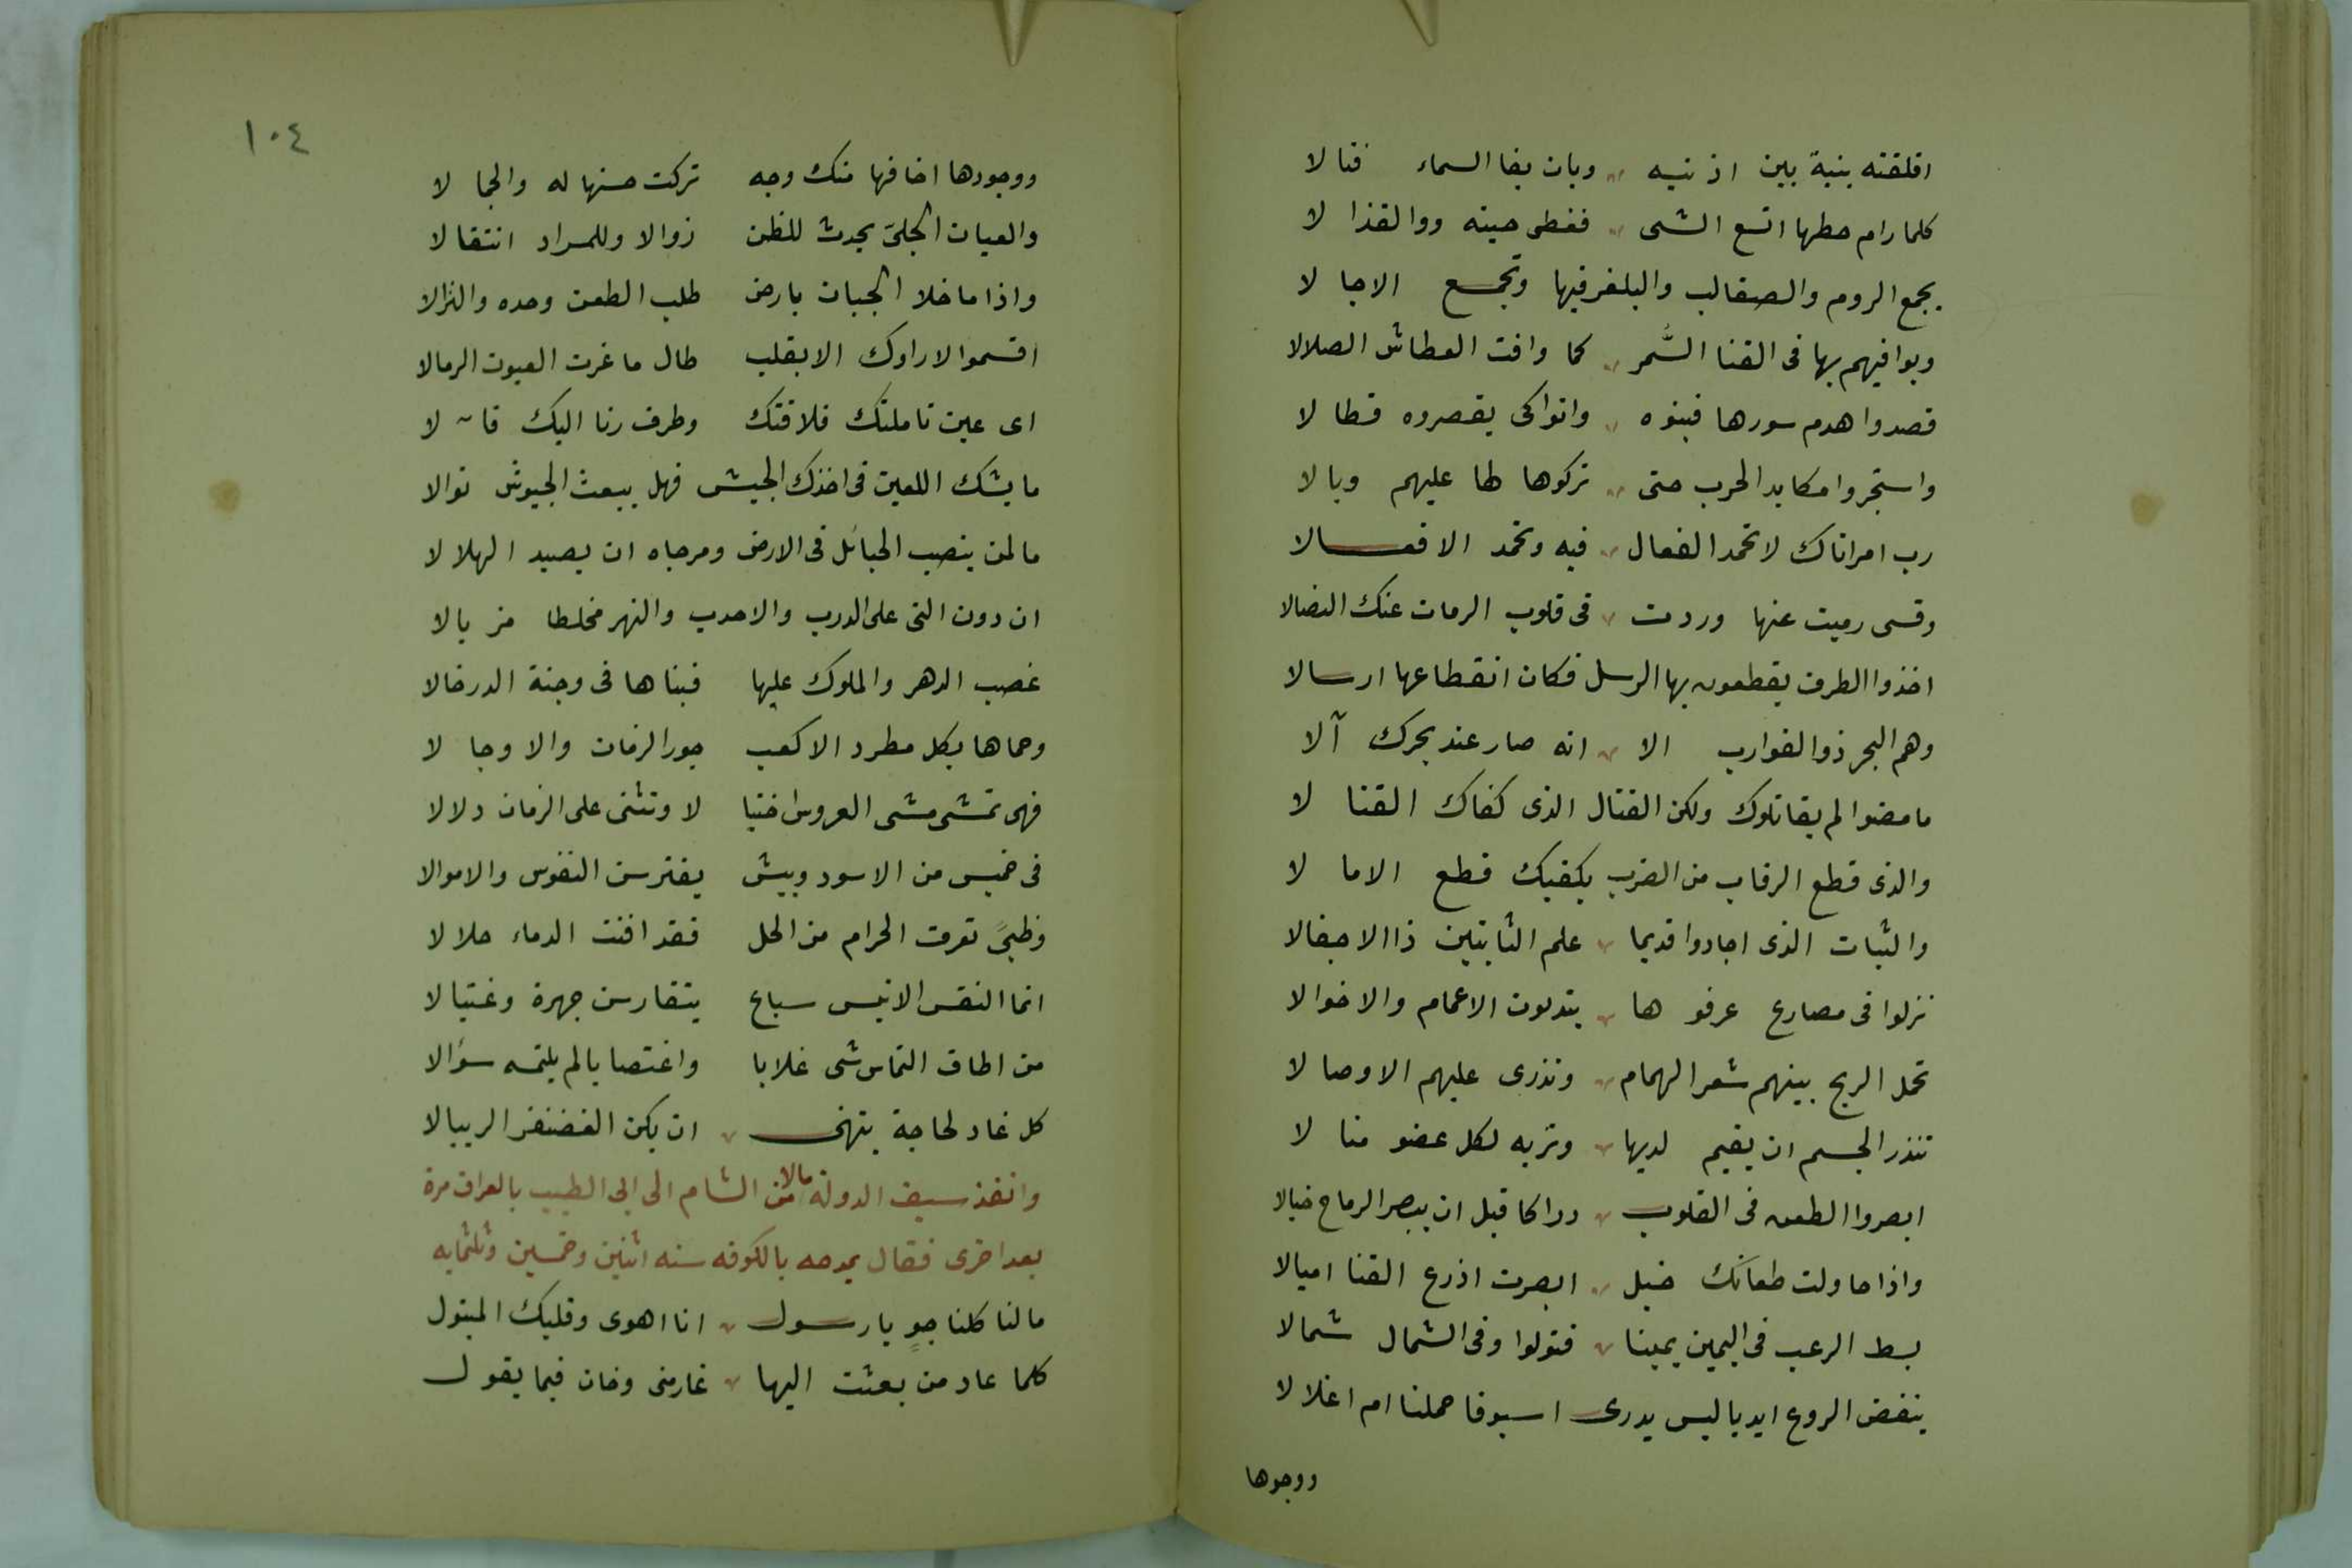 اقلقته بنية بين اذنيه وبان بغا السماء فنالا
كلما رام حطها اتسع الشى فغطى حبينه ووالقذالا
يجمع الروم والصقالب والبلغر فيها وتجمع الاجالا
ويوافيهم بها فى القنا السُّمر كما وافت العطاش الصلالا
قصدوا هدم سورها فبنوه واتواكى يقصروه فطالا
واستجروا مكايد الحرب حتى تركوها طا عليهم وبالا
رب امراتاك لا تحمد الفعال فيه وتحمد الافعالا
وقسى رميت عنها وردت فى قلوب الرمات عنك النضالا
اخذوا الطرق يقطعون بها الرسل فكان انقطاعها ارسالا
وهم البحر ذو الغوارب الا انه صار عند بحرك آلا
ما مضوا لم يقاتلوك ولكن القتال الذى كفاك القتالا
والذى قطع الرقاب من الضرب يكفيك قطع الامالا
والثبات الذى اجادوا قديما علم الثابتين ذا الاجفالا
نزلوا فى مصارع عرفوها يندبون الاعمام والاخوالا
تحمل الريح بينهم شعر الهمام وتذرى عليهم الاوصالا
تنذر الجسم ان يقيم لديها وتريه لكل عضو منالا
ابصروا الطعن فى القلوب دراكا قبل ان يبصر الرماح خيالا
واذا حاولت طعانك خيل ابصرت اذرع القنا اميالا
بسط الرعب فى اليمين يمينا فتولوا وفى الشمال شمالا
ينفض الروع ايديا ليس يدرى اسيوفا حملنا ام اغلالا
ووجوها
١٠٤
ووجودها اخافها منك وجه تركت حسنها له والجمالا
والعيان الجلىّ يحدث للظن زوالا وللمراد انتقالا
واذا ما خلا الجبان بارض طلب الطعن وحده والنزالا
اقسموا لا راوك الا بقلب طال ما غرت العيون الرمالا
اى عين تاملتك فلاقتك وطرف رنا اليك فالا
ما يشك اللعين فى اخذك الجيش فهل يبعث الجيوش نوالا
ما لمن ينصب الحبائل فى الارض ومرجاه ان يصيد الهلالا
ان دون التى على الدرب والاحدب والنهر مخلطا مزيالا
غصب الدهر والملوك عليها فبناها فى وجنة الدرخالا
وحماها بكل مطرد الاكعب جور الزمان والاوجالا
فهى تمشى مشى العروس اختيا لا وتثنى على الزمان دلالا
فى خميس من الاسود وبيش يفترسن النفوس والاموالا
وظبىً تعرف الحرام من الحل فقد افنت الدماء حلالا
انما النفس الانيس سباع يتفارسن جهرة وغتيالا
من اطاق التماس شى غلابا واغتصابا لم يلتمسه سؤالا
كل غاد لحاجة يتهنى ان يكن الغضنفر الريبالا
وانفذ سيف الدولة مالا من الشام الى ابى الطبيب بالعراق مرة
بعد اخرى فقال يمدحه بالكوفه سنه اثنين وخمسين وثلثمايه
ما لنا كلنا جوٍ يا رسول انا اهوى وقلبك المبتول
كلما عاد من بعثت اليها غارمنى وخان فيما يقول